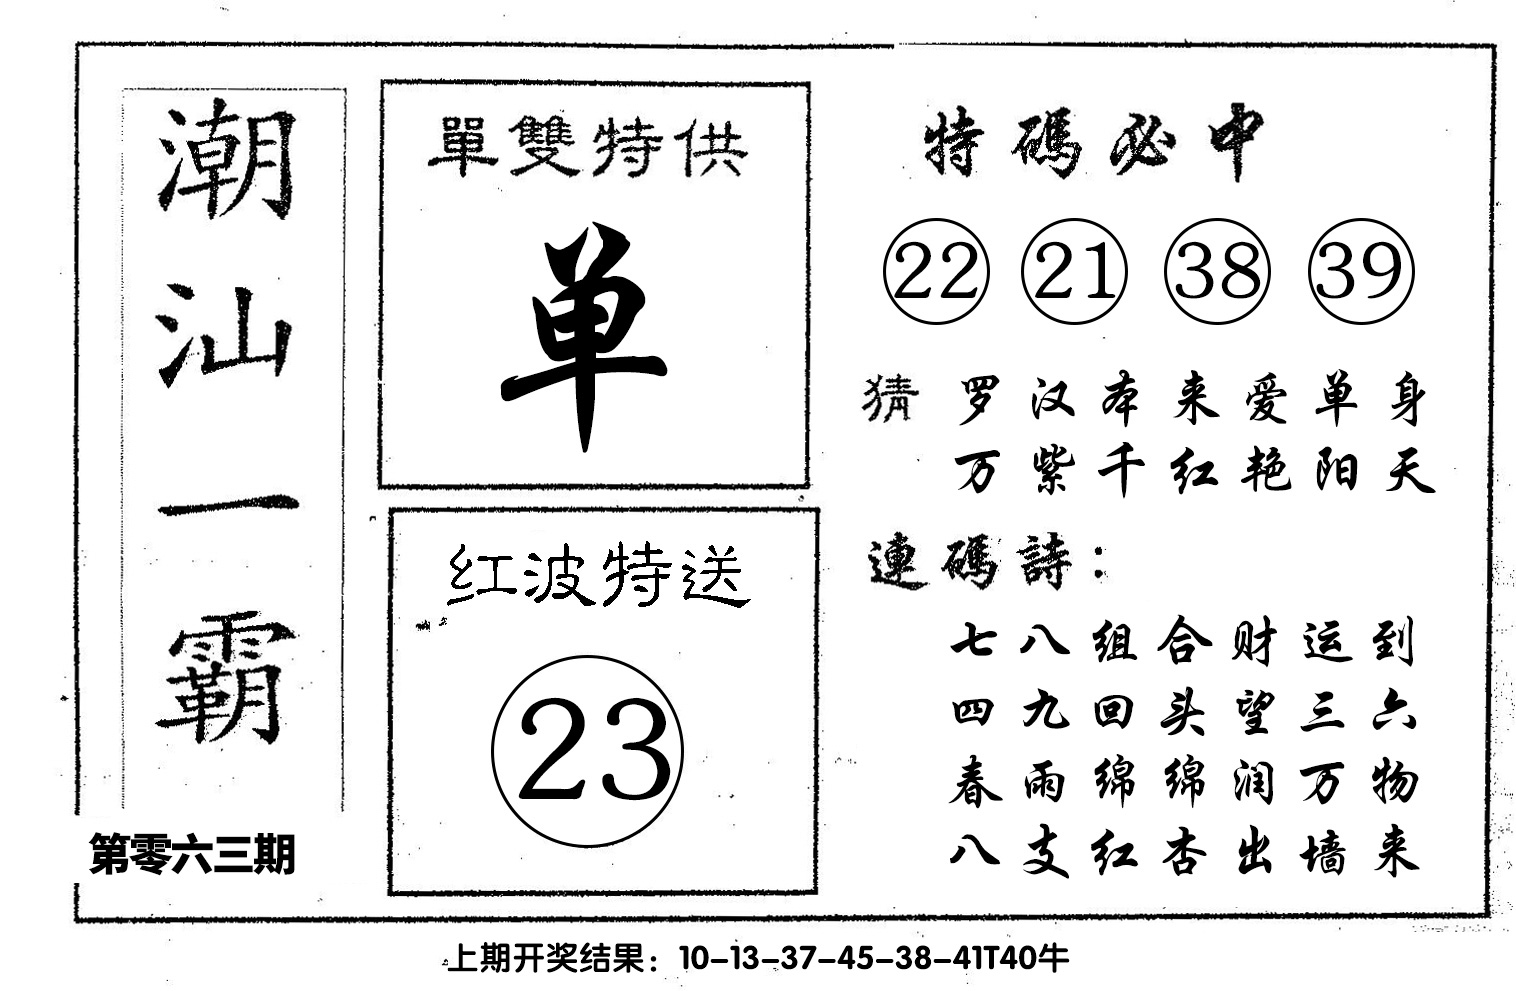 潮汕一霸
第零六三期
單雙特供
单
红波特送
23
特碼必中
22 21 38 39
猜 罗汉本来爱单身
万紫千红艳阳天
連碼詩：
七八组合财运到
四九回头望三六
春雨绵绵润万物
八支红杏出墙来
上期开奖结果：10-13-37-45-38-41T40牛